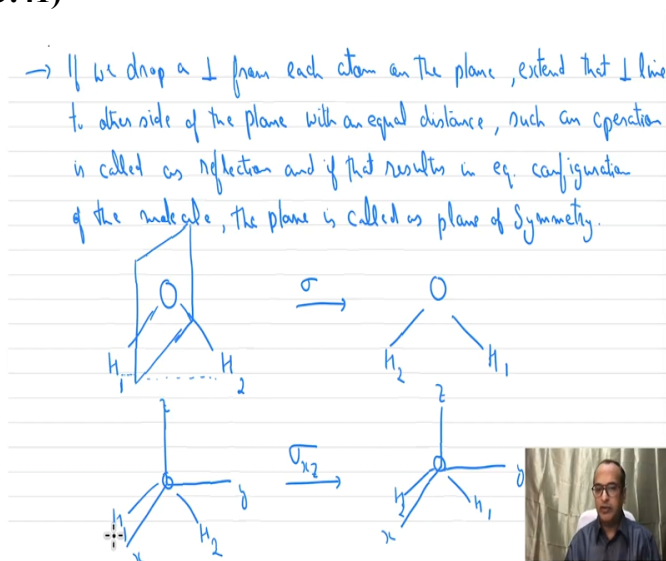 → If we drop a ⊥ from each atom on the plane, extend that ⊥ line
to other side of the plane with an equal distance, such an operation
is called as reflection and if that results in eq. configuration
of the molecule, the plane is called as plane of Symmetry.
O σ O
H1 H2 H2 H1
z z
σxz
O y O y
H H2 H2 H1
x x